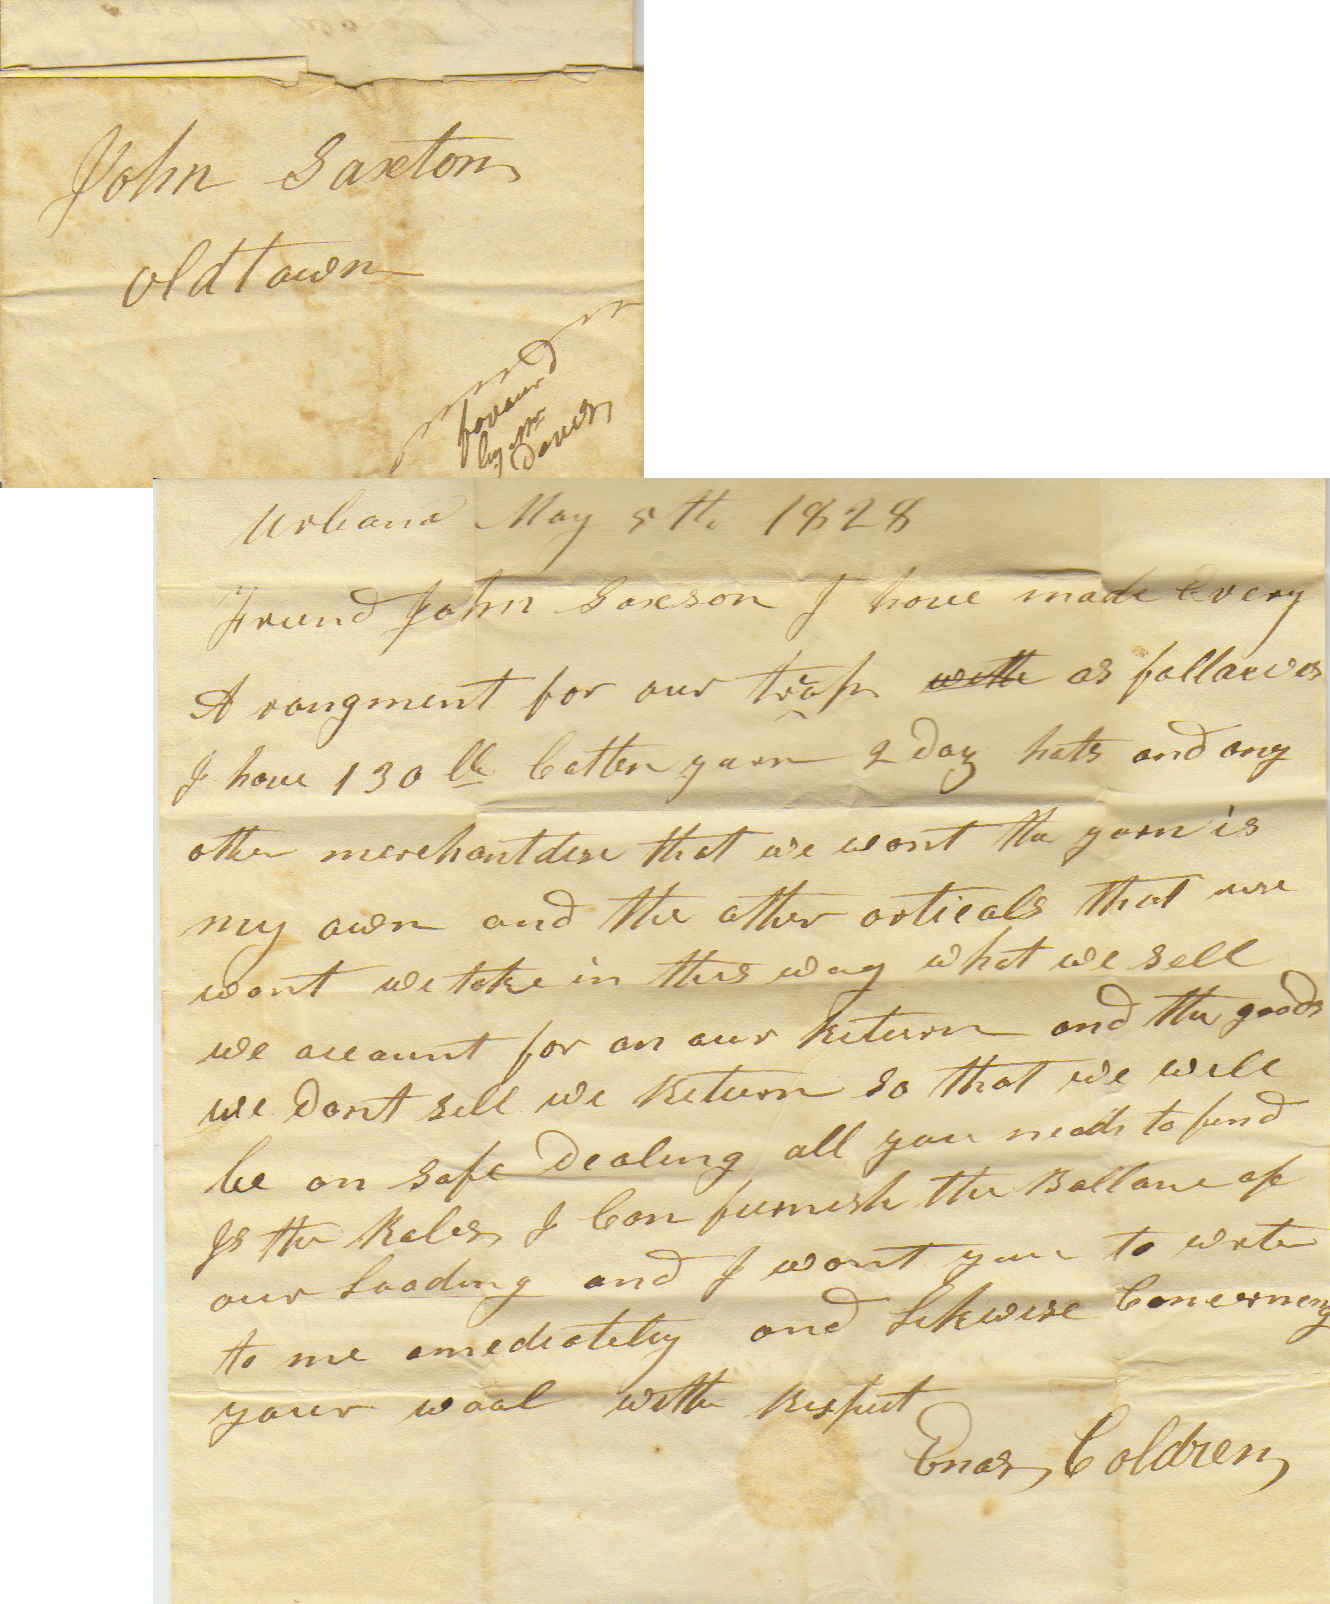 John Saxton
Oldtown
favourd
by Mr
Davis
Urbana May 5th 1828
Friend John Saxson I have made Every
A rangment for our trap as follawes
I have 130 lb Cotten yarn 2 Doz hats and any
other merchantdise that we want the yarn is
my own and the other articals that we
want we take in this way what we sell
we account for on our Return and the goods
we Dont sell we Return so that we will
be on safe Dealing all you needs to send
Is the Bales I Can furnish the Ballance of
our Loading and I want you to write
to me amediately and Likwise Concerning
your wool with Respect
Enos Coldren